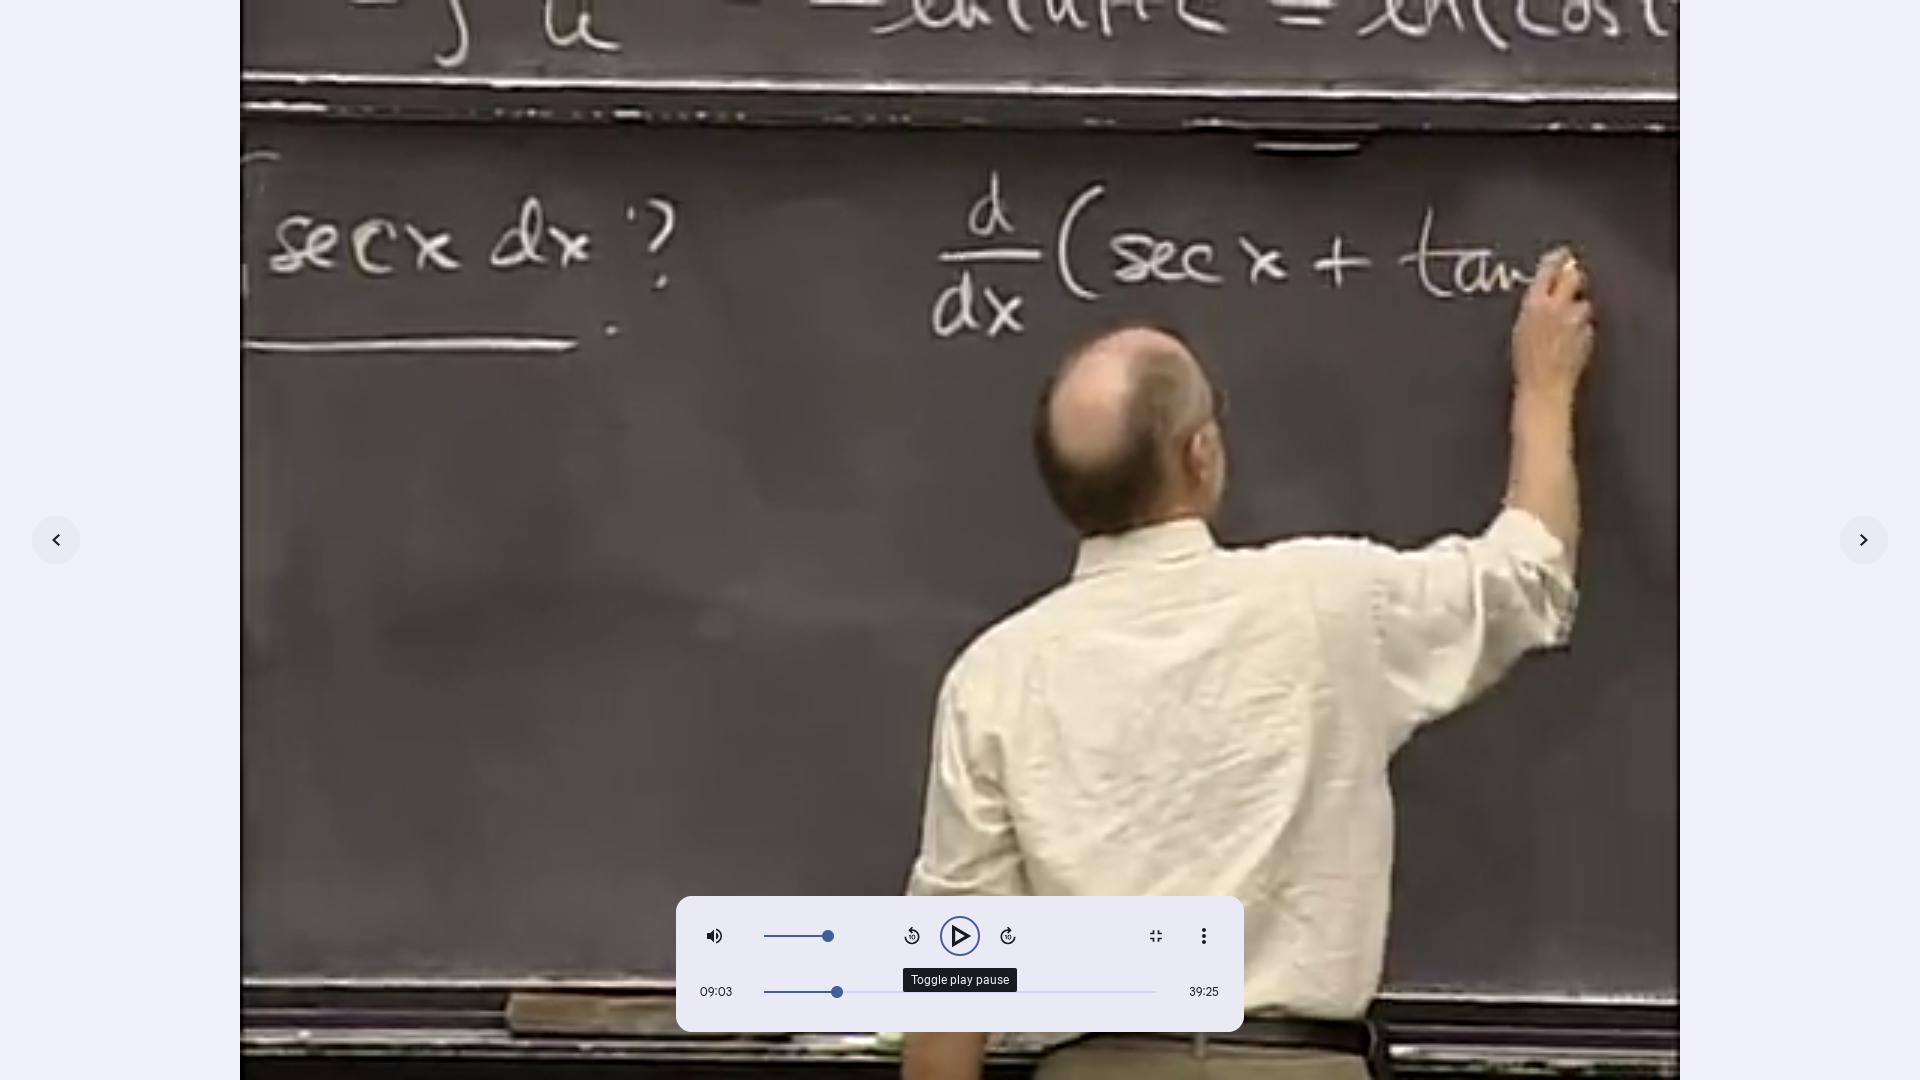 ∫ u = ln(cos
sec x dx ?
d/dx (sec x + tan
Toggle play pause
09:03
39:25